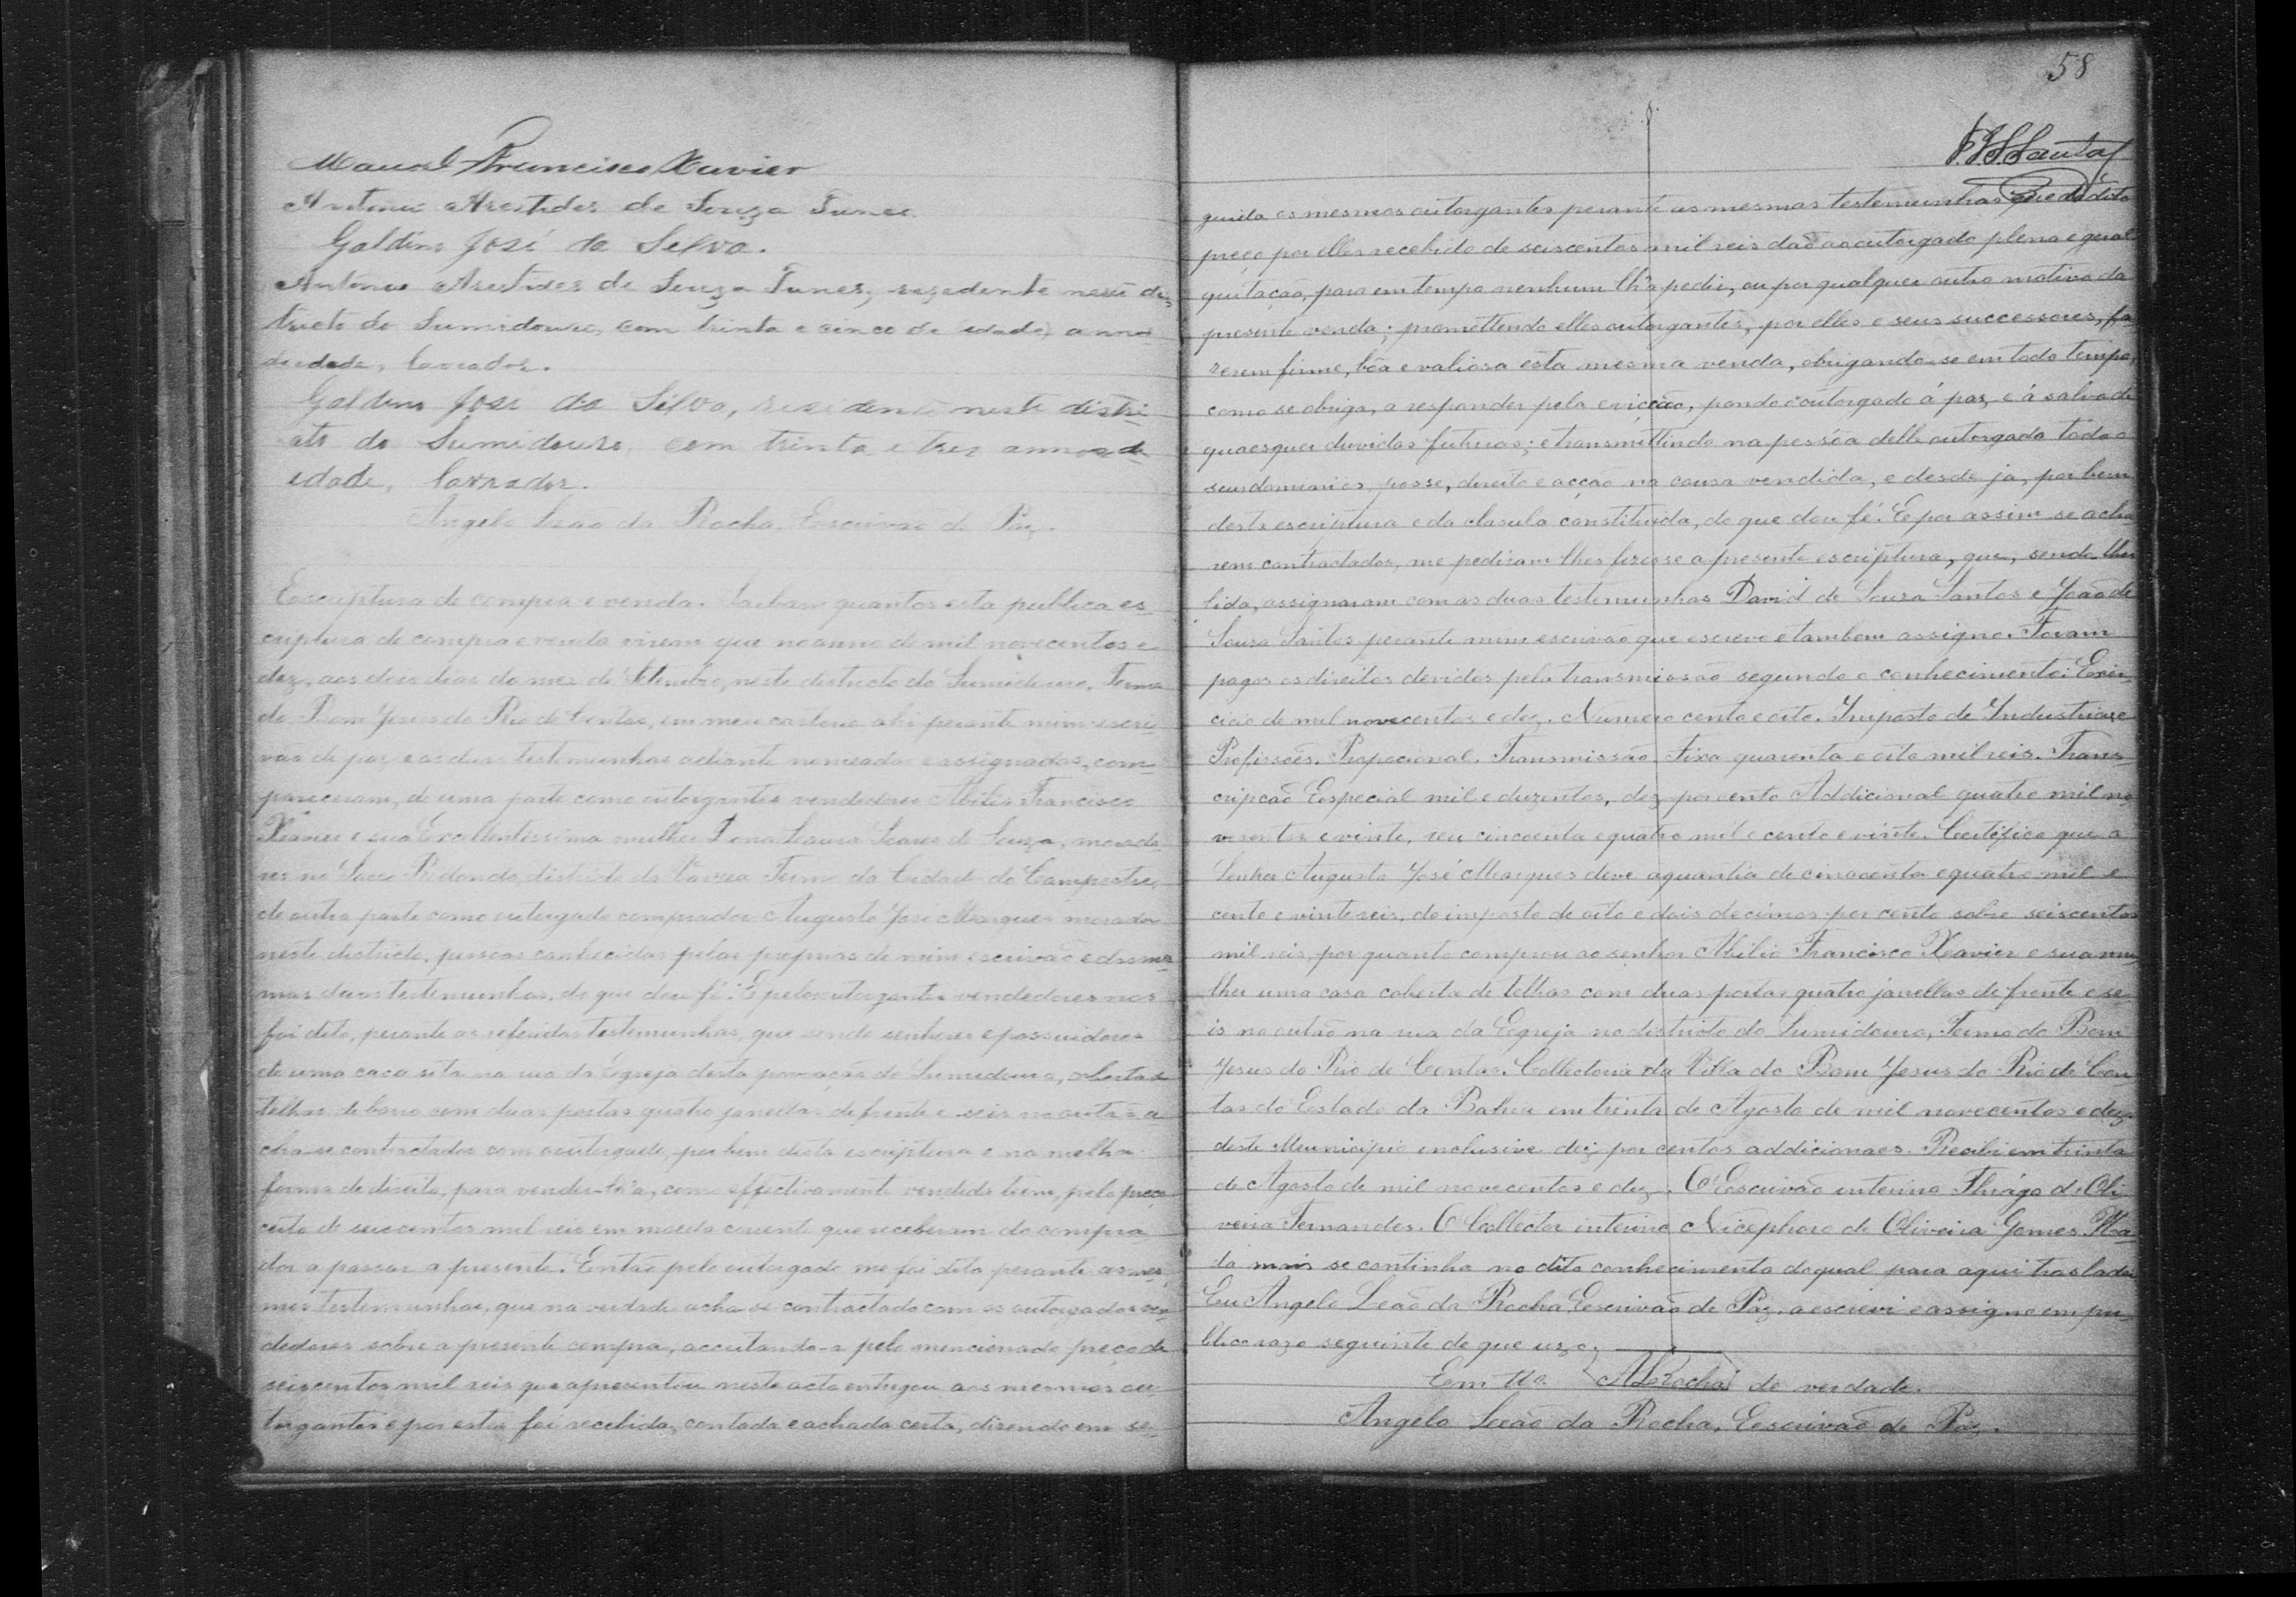 Manoel Francisco Xavier
Antonio Arestides de Souza Funes.
Galdino José da Silva.
Antonio Arestides de Souza Funes, rezedente neste dis-
tricto do Sumidouro, com trinta e cinco de idade, annos
de idade, lavrador.
Galdino José da Silva, rezidente neste distri-
cto do Sumidouro, com trinta e trez annos de
idade, lavrador.
Angelo Leão da Rocha, Escrivão de Paz.
Escriptura de compra e venda. Saibam quantos esta publica es-
criptura de compra e venda virem que no anno de mil novecentos e
dez, aos dois dias do mez de Setembro, neste districto do Sumidouro, Termo
do Bom Jesus do Rio de Contas, em meu cartorio ahi perante mim escri-
vão de paz, e as duas testemunhas adiante nomeadas e assignadas, com-
pareceram, de uma parte como outorgantes vendedores Abilio Francisco
Xavier e sua Excellentissima mulher Dona Soares de Souza, morado-
res no Sacco Redondo, districto da Varzea Termo da Cidade do Campestre,
de outra parte como outorgado comprador Augusto José Marques morador
neste districto, pessoas conhecidas pelas proprias de mim escrivão e das mes-
mas duas testemunhas, do que dou fé. E pelos outorgantes vendedores nos
foi dito, perante as referidas testemunhas, que sendo senhores e possuidores
de uma casa sita na rua da Egreja desta povoação do Sumidouro, coberta de
telhas de barro com duas portas quatro janellas de frente e seis no outão a
cha-se contractados com o outorgado, por bem desta escriptura e na melhor
forma de direito, para vender-lh'a, como effectivamente vendido teem, pelo preço
certo de seiscentos mil reis em moeda corrent que receberam do compra-
dor a passar a presente. Então pelo outorgado me foi dito perante as mes-
mas testemunhas, que na verdade acha-se contractado com os outorgados ven-
dedores sobre a presente compra, acceitando-a pelo mencionado preço de
seiscentos mil reis que apresentou neste acto entregou aos mesmos ou-
torgantes e por estes foi recebida, contada e achada certa, disendo em se-
58
guida os mesmos outorgantes perante as mesmas testemunhas que do dito
preço por elles recebido de seiscentos mil reis dão ao outorgado plena e geral
quitação, para em tempo nenhum lh'a pedir, ou por qualquer outro motivo da
presente venda; promettendo elles outorgantes, por elles e seus successores, fa-
zerem firme, bôa e valiosa esta mesma venda, obrigando-se em todo tempo,
como se obriga, a responder pela evicção, pondo o outorgado á paz, e á salvo de
quaesquer duvidas futuras; e transmittindo na pessôa delle outorgado todo o
seus dominios, posse, direito e acção na cousa vendida, e desde ja, por bem
desta escriptura e da clasula constituida, do que dou fé. E por assim se acha
rem contractados, me pediram lhes fizesse a presente escriptura, que, sendo lhes
lida, assignaram com as duas testemunhas David de Souza Santos e João de
Sousa Santos perante mim escrivão que escrevo e tambem assigno. Foram
pagos os direitos devidos pela transmissão segundo o conhecimento: Exer-
cicio de mil novecentos e dez. Numero cento e oito. Imposto de Industrias e
Profissões. Propocional. Transmissão Fixa quarenta e oito mil reis. Trans-
cripção Especial mil e duzentos, dez por cento Addicional quatro mil no
vecentos e vinte, reis cincoenta e quatro mil e cento e vinte. Certifico que o
Senhor Augusto José Marques deve a quantia de cincoenta e quatro mil e
cento e vinte reis, do imposto de oito e dois decimos por cento sobre seiscentos
mil reis, por quanto comprou ao senhor Abilio Francisco Xavier e sua mu-
lher uma casa coberta de telhas com duas portas quatro janellas de frente e se-
is no outão na rua da Egreja no districto do Sumidouro, Termo do Bom
Jesus do Rio de Contas. Collectoria da Villa do Bom Jesus do Rio de Con
tas do Estado da Bahia em trinta de Agosto de mil novecentos e dez.
deste Municipio inclusive dez por centos addicionaes. Recebi em trinta
de Agosto de mil novecentos e dez. O Escrivão interino Thiágo de Oli-
veira Fernandes. O Collector interino Nicephoro de Oliveira Gomes. Na-
da mais se continha no dito conhecimento do qual para aqui trasladei
Eu Angelo Leão da Rocha Escrivão de Paz. a escrevi e assigno em pu-
blico razo seguinte de que uzo.
Em tto. ALRocha da verdade.
Angelo Leão da Rocha, Escrivão de Paz.